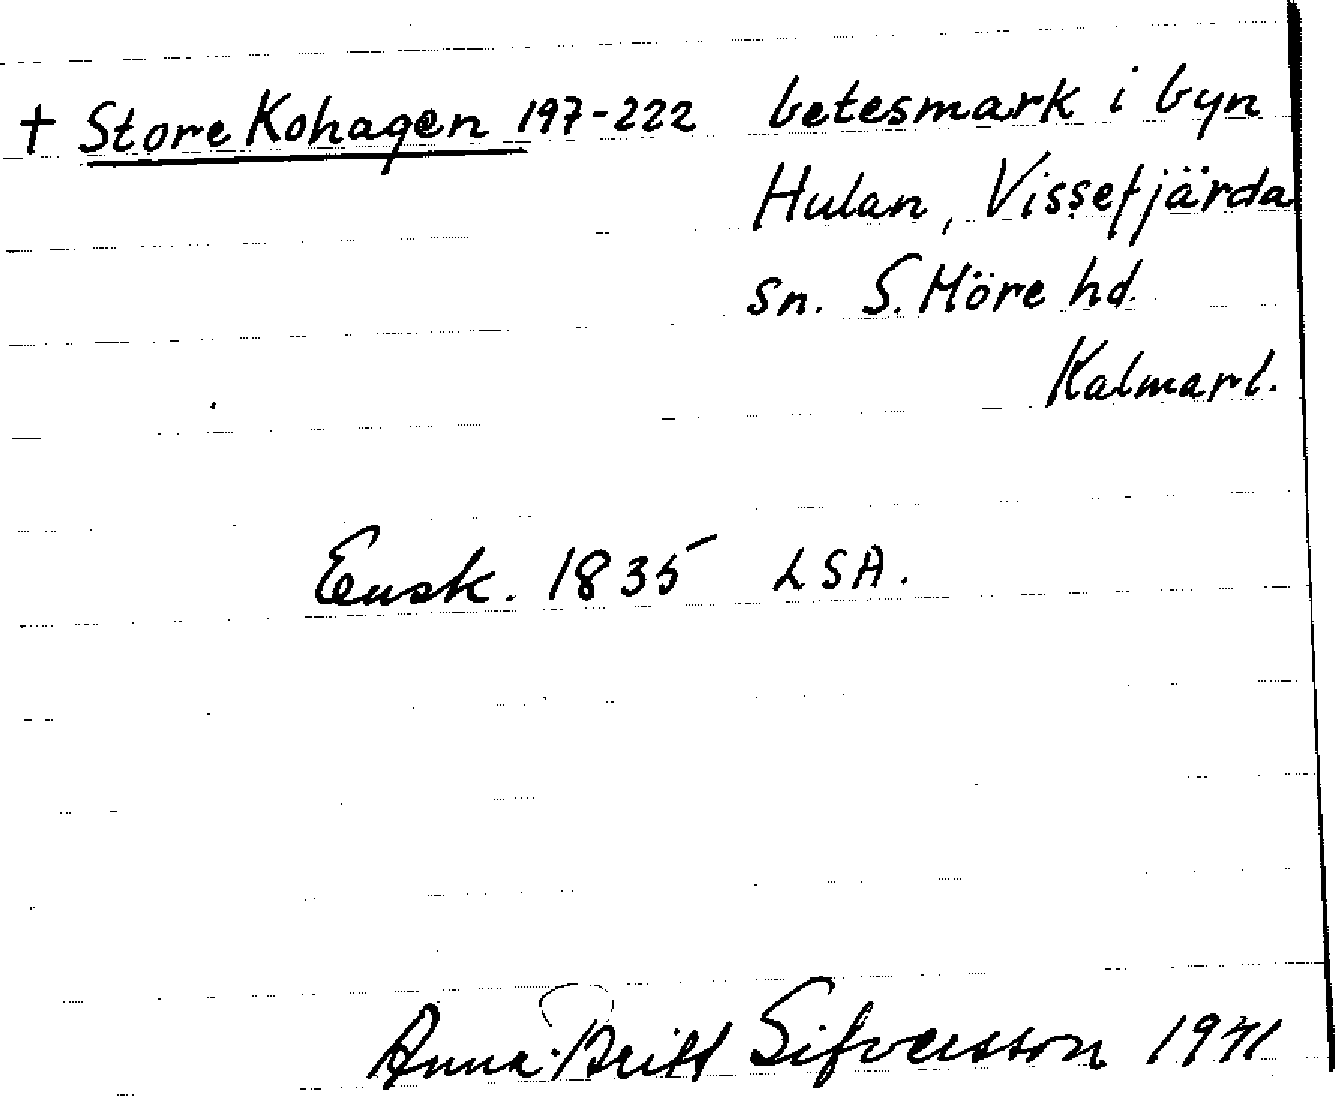 † Store Kohagen 197-222 betesmark i byn
Hulan, Vissefjärda
sn. S. Möre hd.
Kalmar l.
Ensk. 1835 LSA.
Anna-Britt Sifversson 1971